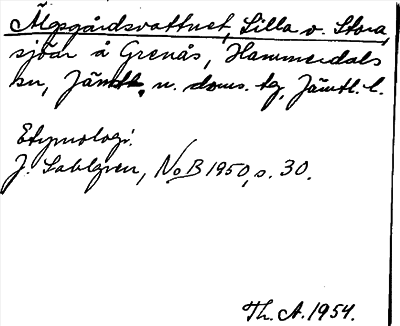 Älgsgårdsvattnet, Lilla o. Stora,
sjöar å Grenås, Hammerdals
sn, Jämtl. n. doms. tg, Jämtl. l.
Etymologi.
J. Sahlgren, NoB 1950, s. 30.
Th. A. 1954.